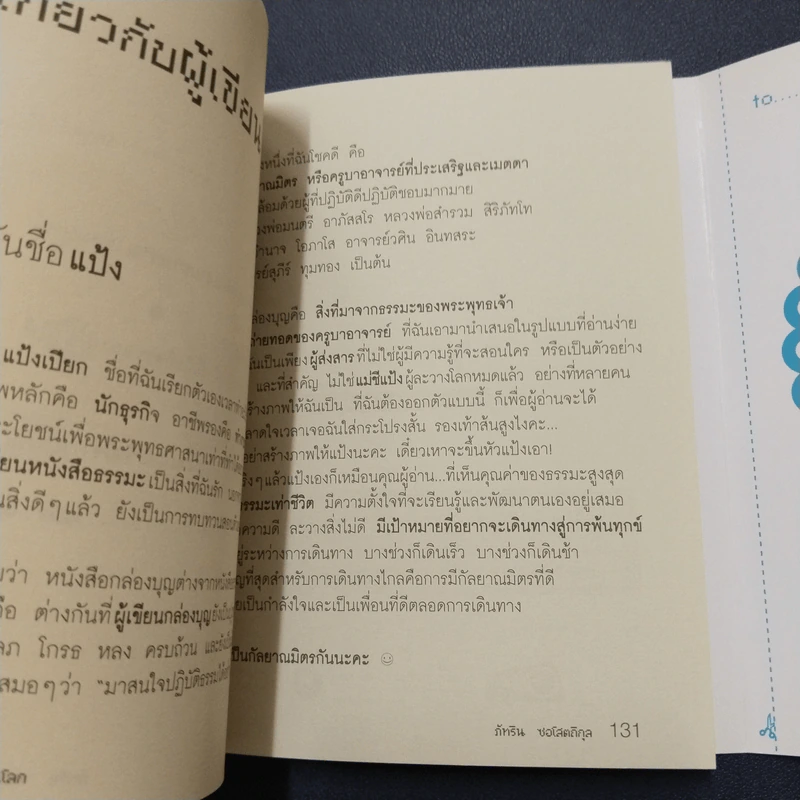 เกี่ยวกับผู้เขียน
ฉันชื่อ แป้ง
แป้งเปียก ชื่อที่ฉันเรียกตัวเอง
พหลักคือ นักธุรกิจ อาชีพรองคือ
ะโยชน์เพื่อพระพุทธศาสนาเท่าที่
ยนหนังสือธรรมะเป็นสิ่งที่ฉันรัก
นสิ่งดีๆแล้ว ยังเป็นการทบทวน
ยว่า หนังสือกล่องบุญต่างจาก
คือ ต่างกันที่ผู้เขียนกล่องบุญ
ลภ โกรธ หลง ครบถ้วน
สมอๆว่า “มาสนใจปฏิบัติธรรม
โลก
งหนึ่งที่ฉันโชคดี คือ
ยาณมิตร หรือครูบาอาจารย์ที่ประเสริฐและเมตตา
ล้อมด้วยผู้ที่ปฏิบัติดีปฏิบัติชอบมากมาย
วงพ่อมนตรี อาภัสสโร หลวงพ่อสำรวม สิริภัทโท
อำนาจ โอภาโส อาจารย์วศิน อินทสระ
รย์สุภีร์ ทุมทอง เป็นต้น
ล่องบุญคือ สิ่งที่มาจากธรรมะของพระพุทธเจ้า
ถ่ายทอดของครูบาอาจารย์ ที่ฉันเอามานำเสนอในรูปแบบที่อ่านง่าย
ันเป็นเพียงผู้ส่งสารที่ไม่ใช่ผู้มีความรู้ที่จะสอนใคร หรือเป็นตัวอย่าง
และที่สำคัญ ไม่ใช่แม่ชีแป้งผู้ละวางโลกหมดแล้ว อย่างที่หลายคน
ร้างภาพให้ฉันเป็น ที่ฉันต้องออกตัวแบบนี้ ก็เพื่อผู้อ่านจะได้
ลาดใจเวลาเจอฉันใส่กระโปรงสั้น รองเท้าส้นสูงไงคะ...
อย่าสร้างภาพให้แป้งนะคะ เดี๋ยวเหาจะขึ้นหัวแป้งเอา!
ริงๆแล้วแป้งเองก็เหมือนคุณผู้อ่าน...ที่เห็นคุณค่าของธรรมะสูงสุด
ธรรมะเท่าชีวิต มีความตั้งใจที่จะเรียนรู้และพัฒนาตนเองอยู่เสมอ
ความดี ละวางสิ่งไม่ดี มีเป้าหมายที่อยากจะเดินทางสู่การพ้นทุกข์
ยู่ระหว่างการเดินทาง บางช่วงก็เดินเร็ว บางช่วงก็เดินช้า
ัญที่สุดสำหรับการเดินทางไกลคือการมีกัลยาณมิตรที่ดี
ยเป็นกำลังใจและเป็นเพื่อนที่ดีตลอดการเดินทาง
เป็นกัลยาณมิตรกันนะคะ ☺
ภัทริน ซอโสตถิกุล 131
to.....